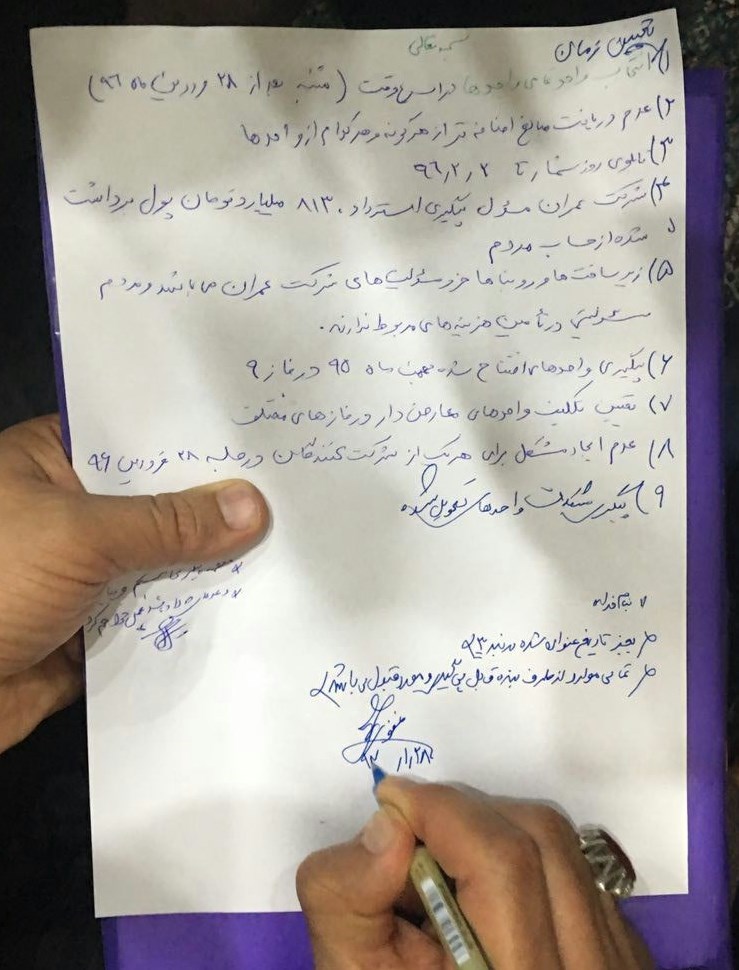 بسمه تعالی
تعیین زمان
۱) انتخاب واحدهای واحدها در اسرع وقت (متنبه بعد از ۲۸ فروردین ماه ۹۶)
۲) عدم دریافت مبالغ اضافه تر از هر گونه و هر کدام از واحدها
۳) تابلوی روز شمار تا ۹۶/۲/۲
۴) شرکت عمران مسئول پیگیری استرداد ۸۱۳.۰ میلیارد تومان پول برداشت
شده از حساب مردم
۵) زیرساخت ها و روبناها جزو مسئولیت های شرکت عمران می باشد و مردم
مسئولیتی در تأمین هزینه های مربوط ندارند.
۶) پیگیری واحدهای افتتاح شده بهمن ماه ۹۵ در فاز ۹
۷) تعیین تکلیف واحدهای معارض دار در فازهای مختلف
۸) عدم ایجاد مشکل برای هر یک از شرکت کنندگان در جلسه ۲۸ فروردین ۹۶
۹) پیگیری مشکلات واحدهای تحویل شده
بنام خدا
بجز تاریخ عنوان شده در بند ۳
تمامی موارد از طرف بنده قابل پیگیری و مورد قبول می باشد